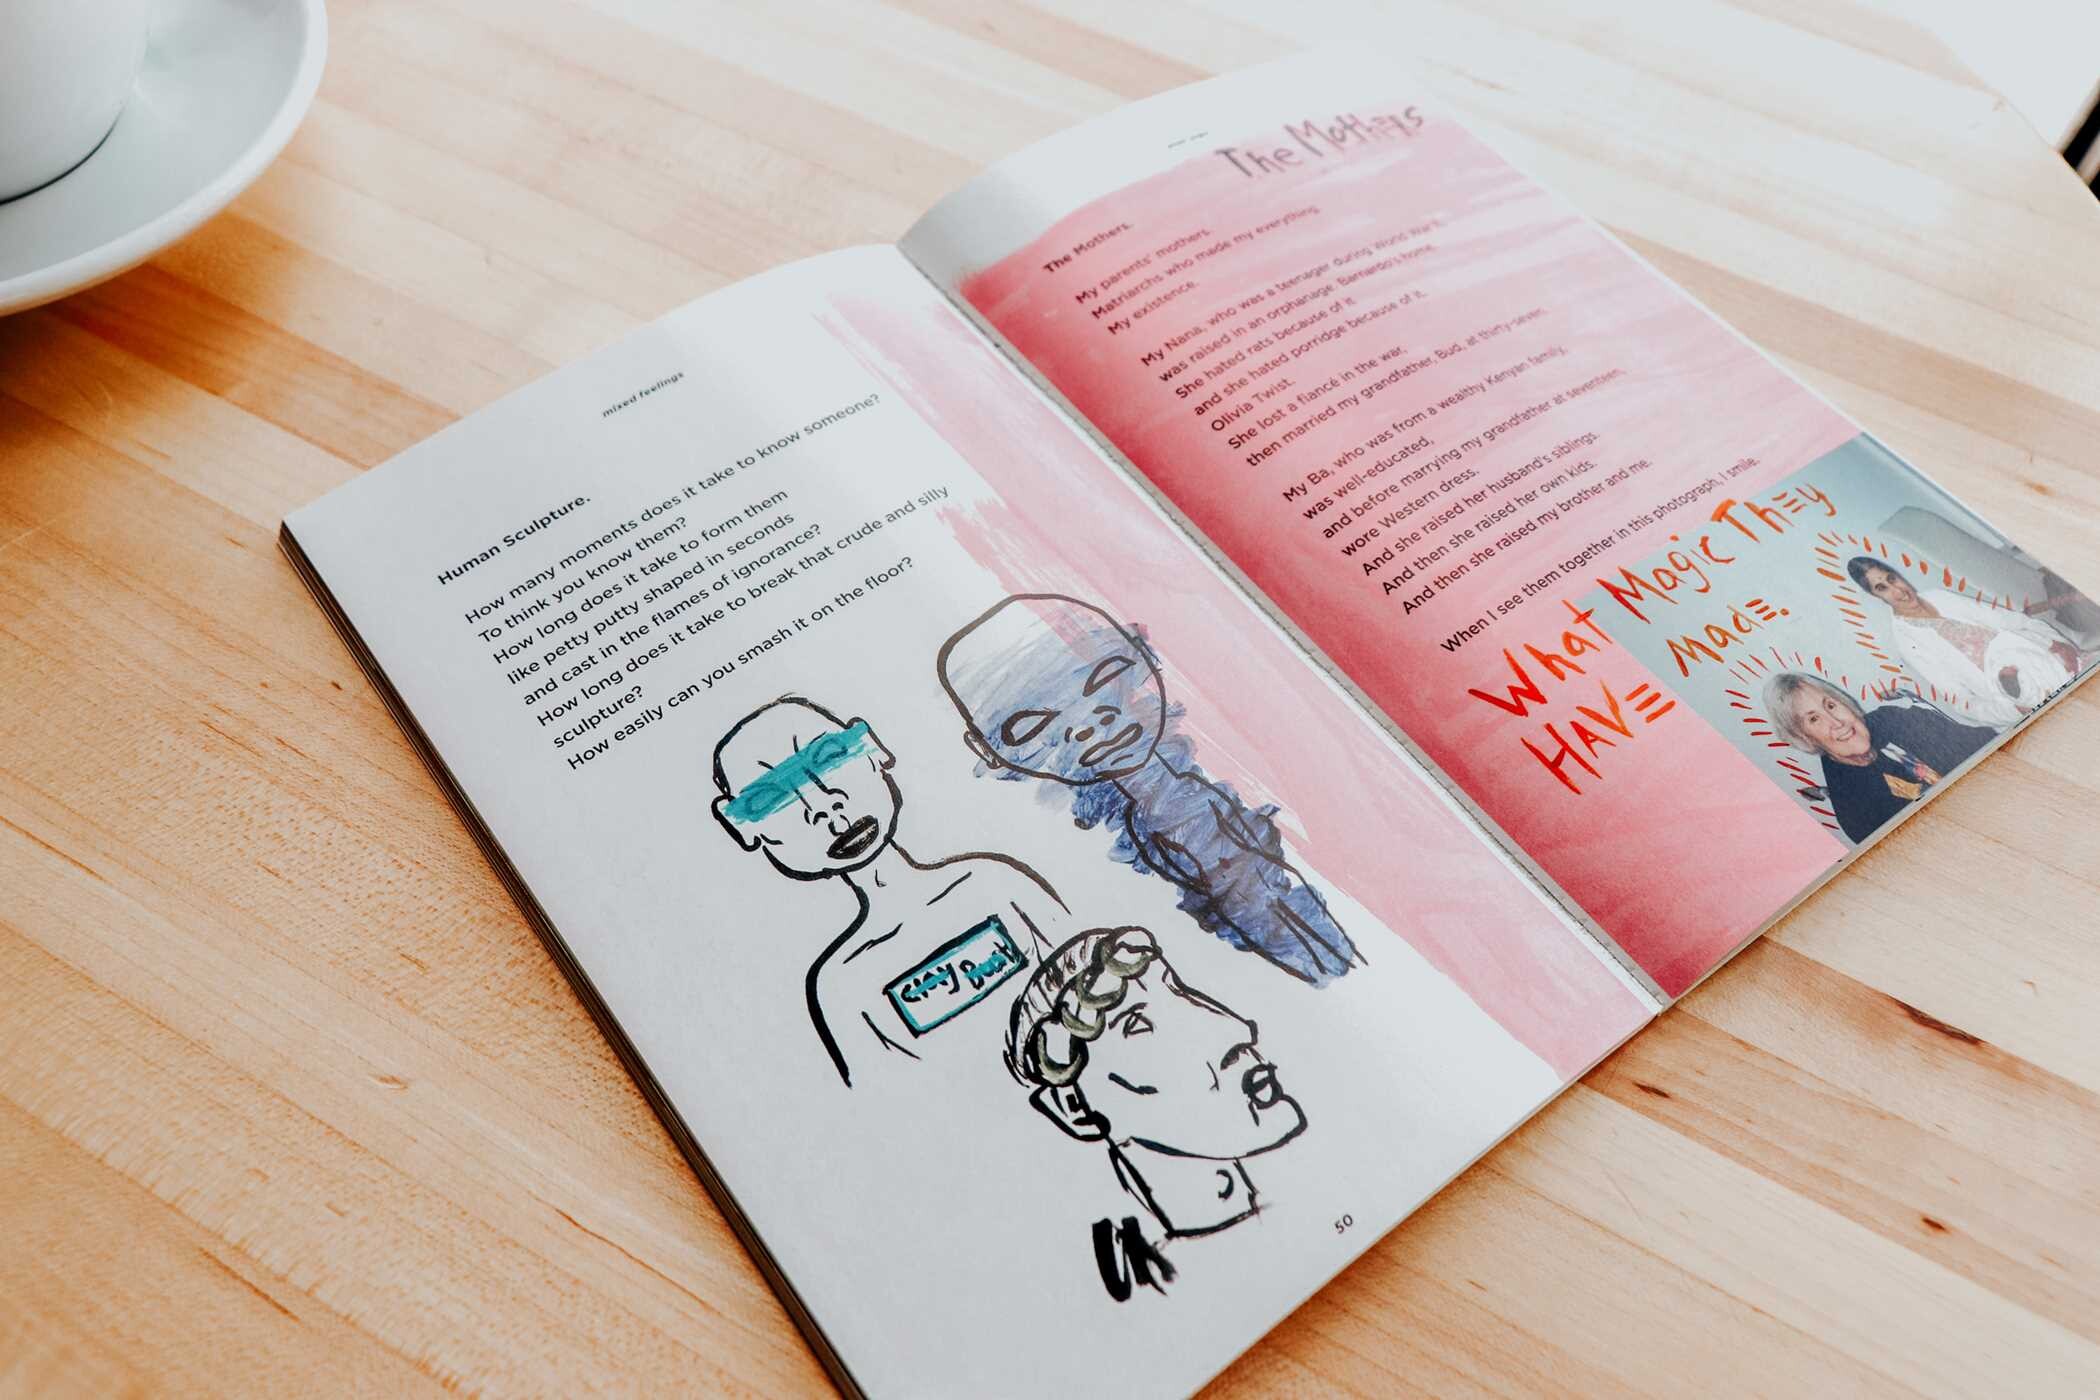 mixed feelings
Human Sculpture.
How many moments does it take to know someone?
To think you know them?
How long does it take to form them
like petty putty shaped in seconds
and cast in the flames of ignorance?
How long does it take to break that crude and silly
sculpture?
How easily can you smash it on the floor?
Clay Bust
50
The Mothers
The Mothers.
My parents' mothers.
Matriarchs who made my everything.
My existence.
My Nana, who was a teenager during World War II,
was raised in an orphanage. Barnardo's home.
She hated rats because of it
and she hated porridge because of it.
Olivia Twist.
She lost a fiancé in the war,
then married my grandfather, Bud, at thirty-seven.
My Ba, who was from a wealthy Kenyan family,
was well-educated,
and before marrying my grandfather at seventeen,
wore Western dress.
And she raised her husband's siblings.
And then she raised her own kids.
And then she raised my brother and me.
When I see them together in this photograph, I smile.
What Magic They
HAVE Made.